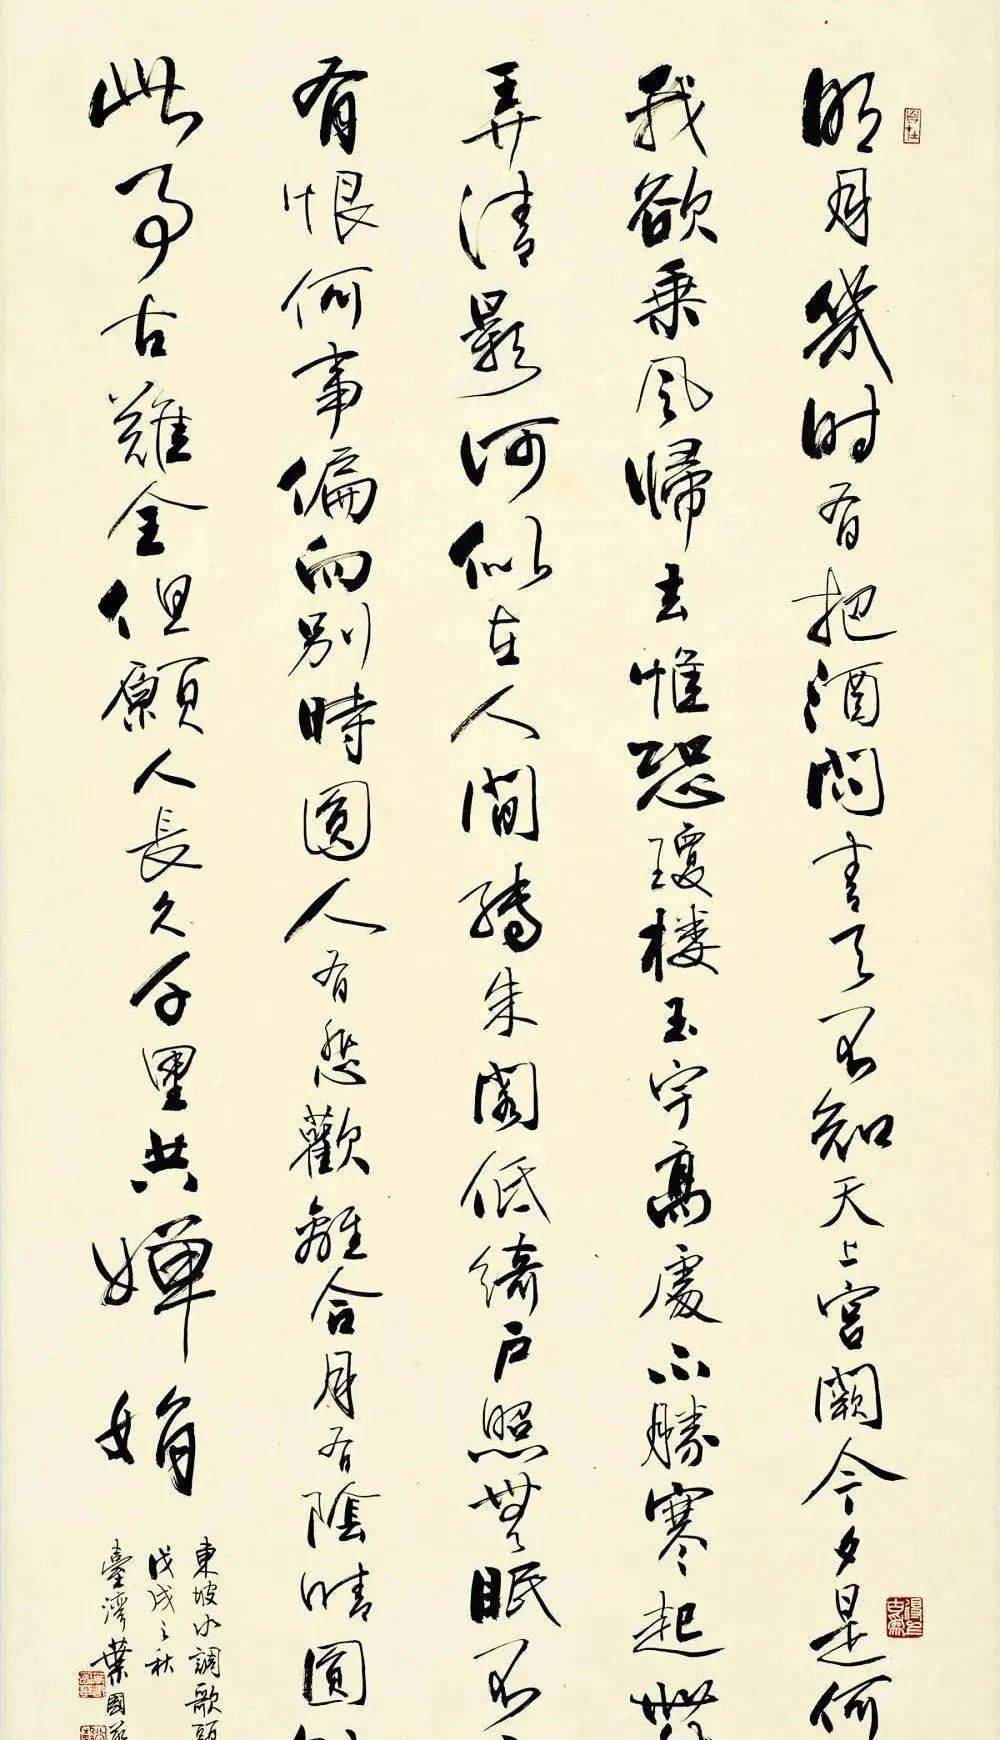 明月幾时有把酒問青天不知天上宮闕今夕是何
我欲乘風歸去惟恐瓊楼玉宇高處不勝寒起舞
弄清影何似在人間轉朱閣低綺戶照無眠不
有恨何事偏向別時圓人有悲歡離合月有陰晴圓
此事古難全但願人長久千里共嬋娟
東坡水調歌頭
戊戌之秋
臺灣葉國